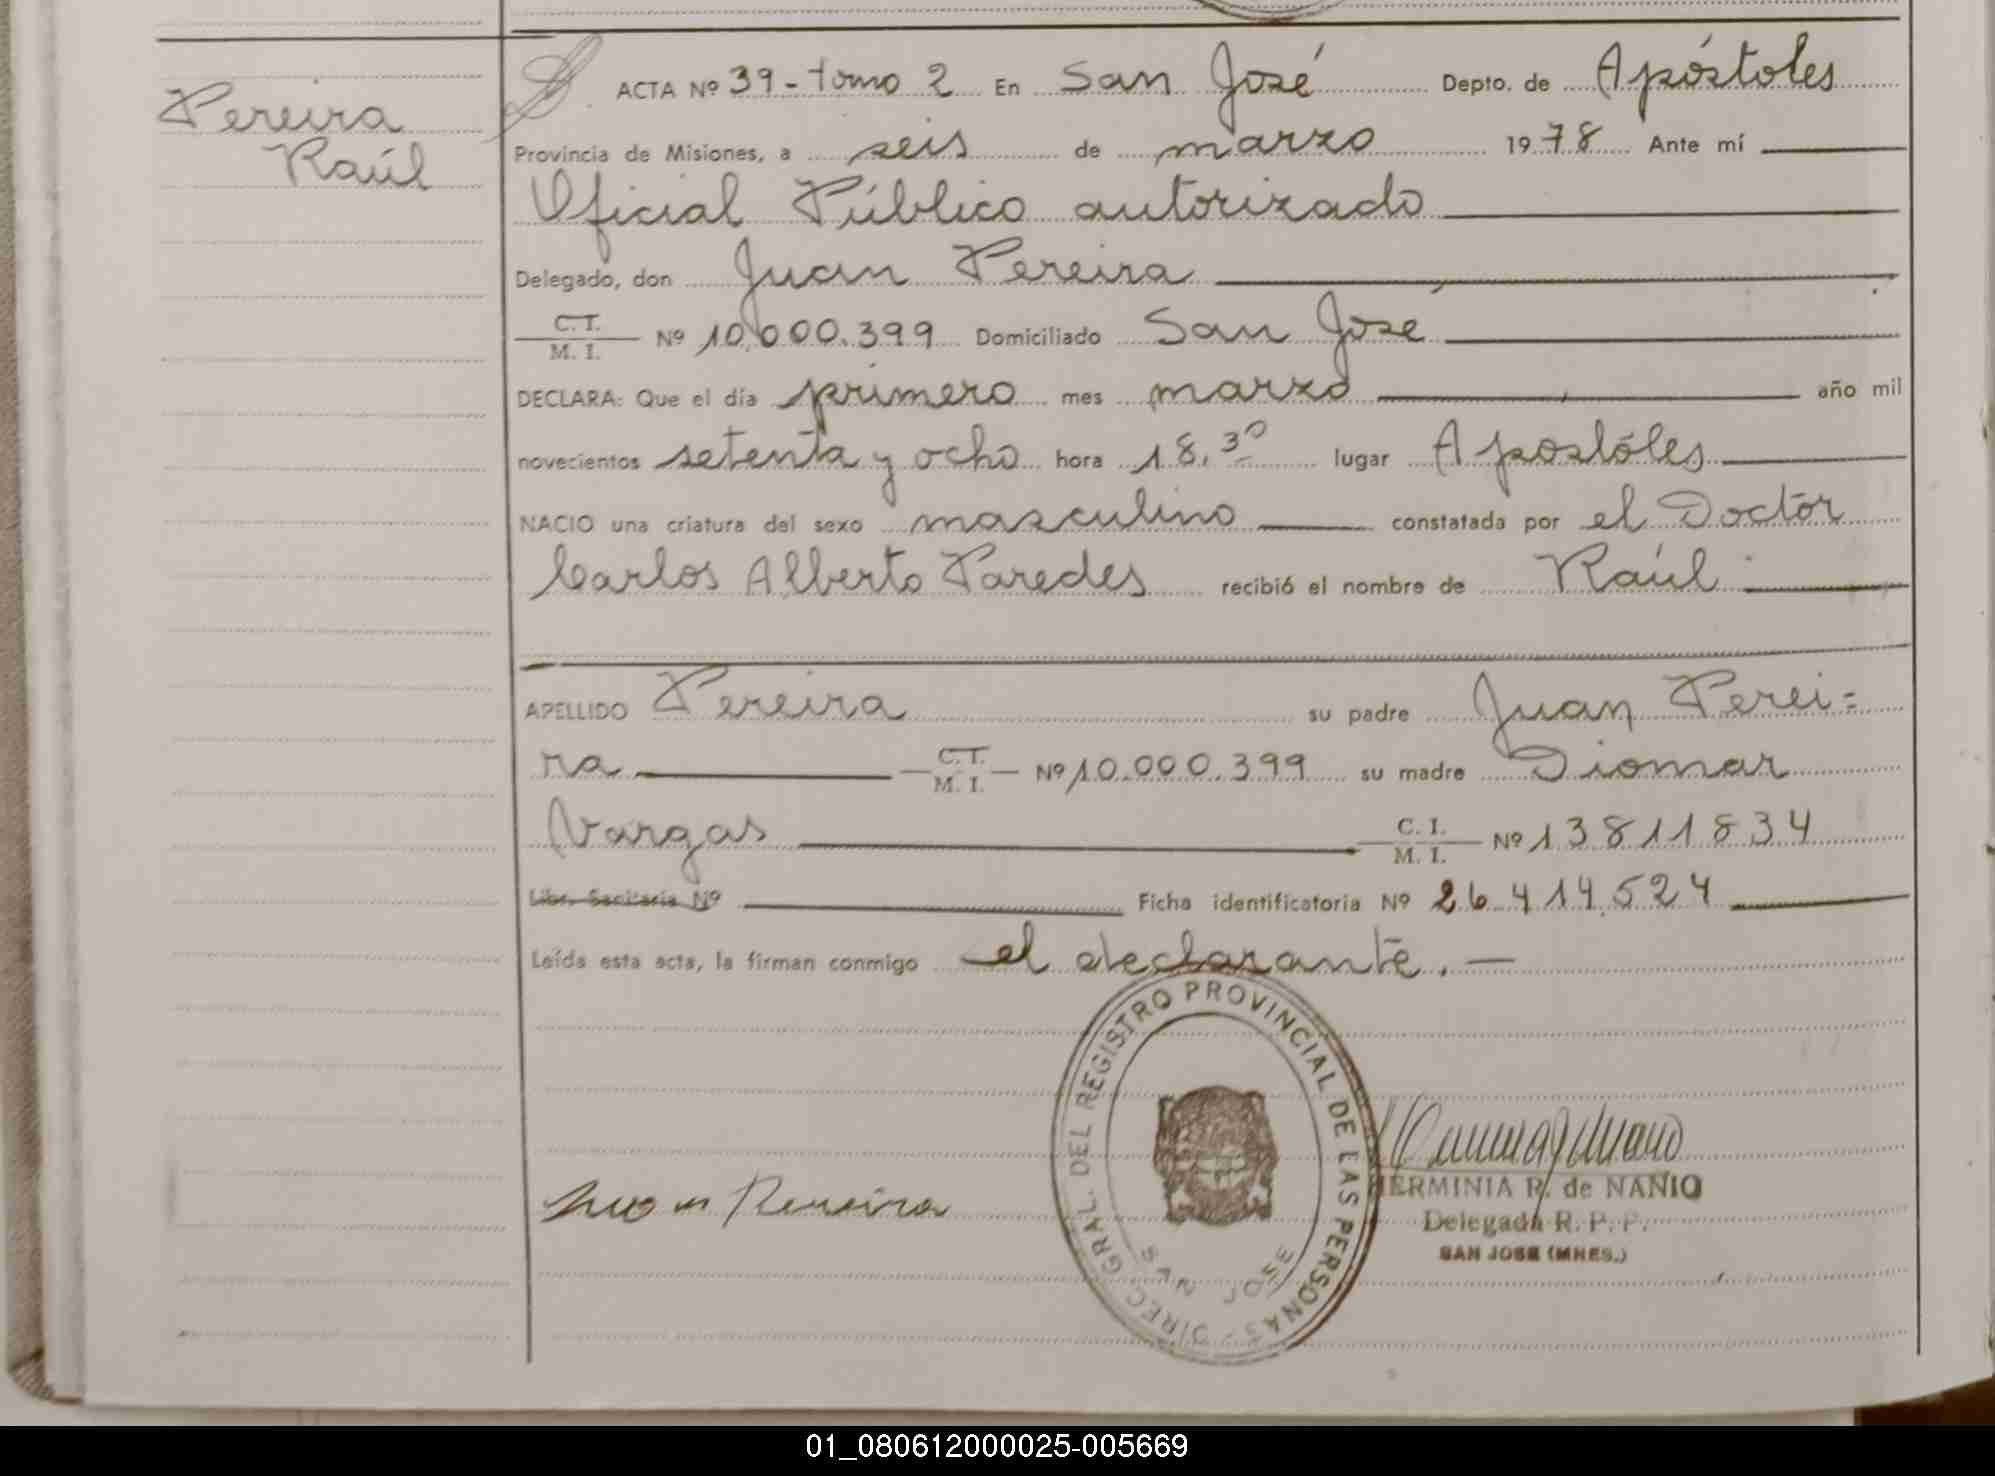 Pereira
Raúl
ACTA Nº 39 - tomo 2 En San José Depto. de Apóstoles
Provincia de Misiones, a seis de marzo 1978 Ante mí
Oficial Público autorizado
Delegado, don Juan Pereira
C.I. M.I. Nº 10.000.399 Domiciliado San José
DECLARA: Que el día primero mes marzo año mil
novecientos setenta y ocho hora 18,30 lugar Apostóles
NACIO una criatura del sexo masculino constatada por el Doctor
Carlos Alberto Paredes recibió el nombre de Raúl
APELLIDO Pereira su padre Juan Perei=
ra C.I. M.I. Nº 10.000.399 su madre Diomar
Vargas C.I. M.I. Nº 13811834
Libr. Sanitaria Nº Ficha identificatoria Nº 26.414.524
Leída esta acta, la firman conmigo el declarante.
Juan Pereira
DIREC. GRAL. DEL REGISTRO PROVINCIAL DE LAS PERSONAS
SAN JOSE
HERMINIA R. de NANIO
Delegada R. P. P.
SAN JOSE (MNES.)
01_080612000025-005669